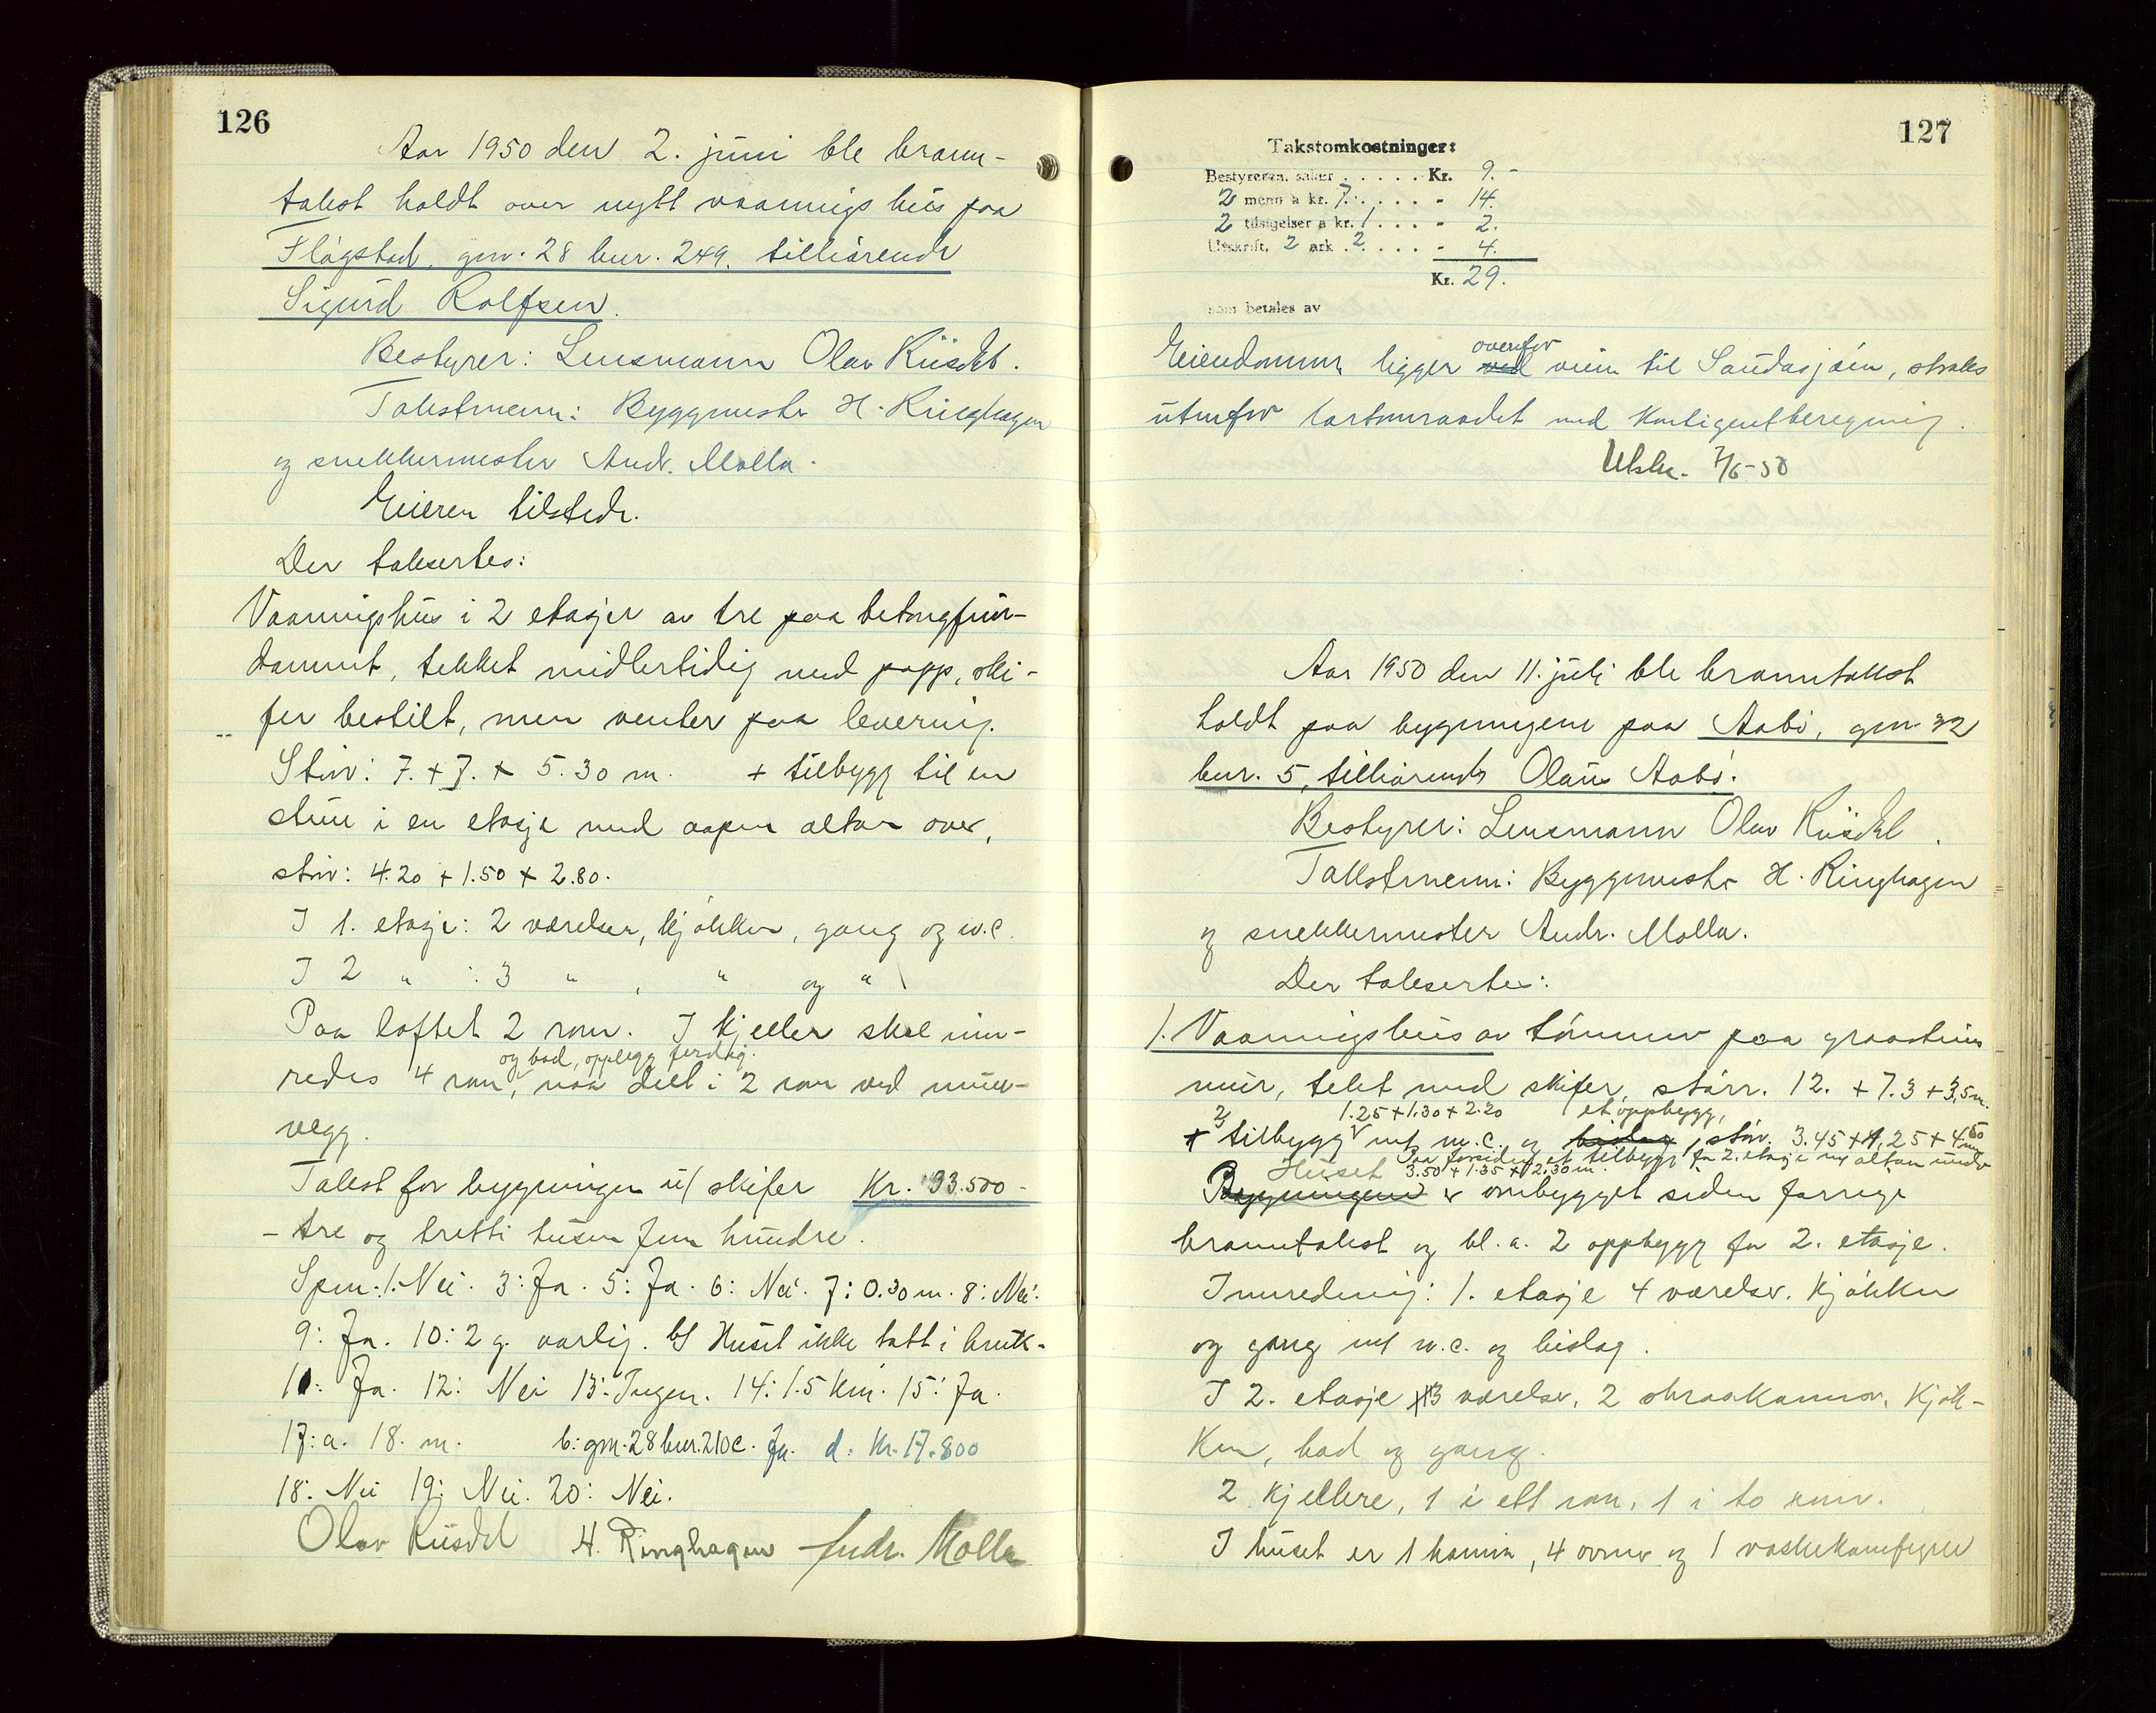 126
Aar 1950 den 2. juni ble brann-
takst holdt over nytt vaaningshus paa
Flågstad, gnr. 28 bnr. 249. tilhørende
Sigurd Rolfsen.
Bestyrer: Lensmann Olav Riisdal.
Takstmenn: Byggmester H. Ringhagen
og snekkermester Andr. Molla.
Eieren tilstede.
Der takseertes:
Vaaningshus i 2 etasjer av tre paa betongfun-
dament, tekket midlertidig med papp, ski-
fer bestilt, men venter paa levering.
Størr: 7. + 7. + 5.30 m. + tilbygg til en
stue i en etasje med aapen altan over,
størr: 4.20 + 1.50 + 2.80.
I 1. etasje: 2 værelser, kjøkken, gang og w.c.
I 2 " : 3 " , " og "
Paa loftet 2 rom. I kjeller skal inn-
og bad, opplegg ferdig.
redes 4 rom, naa delt i 2 rom ved mur-
vegg.
Takst for bygningen u/ skifer Kr. 33.500 -
- tre og tretti tusen fem hundre.
Spm. 1: Nei. 3: Ja. 5: Ja. 6: Nei. 7: 0.30 m. 8: Nei.
9: Ja. 10: 2 g. aarlig. Huset ikke tatt i bruk.
11: Ja. 12: Nei 13: Ingen. 14: 1.5 km. 15: Ja.
17: a. 18. m. b: gnr. 28 bnr. 210 c. Ja. d: Kr. 17.800
18: Nei 19: Nei. 20: Nei.
Olav Riisdal H. Ringhagen Andr. Molla
127
Takstomkostninger:
Bestyreren, saker . . . . . Kr. 9.-
2 menn a kr. 7. . . . . - 14.
2 tilsigelser a kr. 1 . . . - 2.
Utskrift, 2 ark . 2 . . . . - 4.
Kr. 29.
som betales av
overfor
Eiendommen ligger ved veien til Saudasjøen, straks
utenfor kartomraadet med kontigentberegning.
Utskr. 7/6-50
Aar 1950 den 11. juli ble branntakst
holdt paa bygningene paa Aabø, gnr. 32
bnr. 5, tilhørende Olaus Aabø.
Bestyrer: Lensmann Olav Riisdal.
Takstmenn: Byggmester H. Ringhagen
og snekkermester Andr. Molla.
Der takseertes:
1. Vaaningshus av tømmer paa graastens
mur, tekt med skifer, størr. 12. + 7.3 + 3,5 m.
2 1.25 + 1.30 + 2.20 et oppbygg,
+ tilbygg m/ w.c. og bislag, størr. 3.45 + 4,25 + 4.50
Paa forsiden et tilbygg fra 2. etasje m/ altan under
Huset 3.50 + 1.35 + 2.30 m.
Bygningen er ombygget siden forrige
branntakst og bl.a. 2 oppbygg fra 2. etasje.
Innredning: 1. etasje 4 værelser, kjøkken
og gang m/ w.c. og bislag.
I 2. etasje 3 værelser, 2 skraakammer, kjøk-
ken, bad og gang.
2 kjellere, 1 i ett rom, 1 i to rom.
I huset er 1 kamin, 4 ovner og 1 vaskekomfyrer